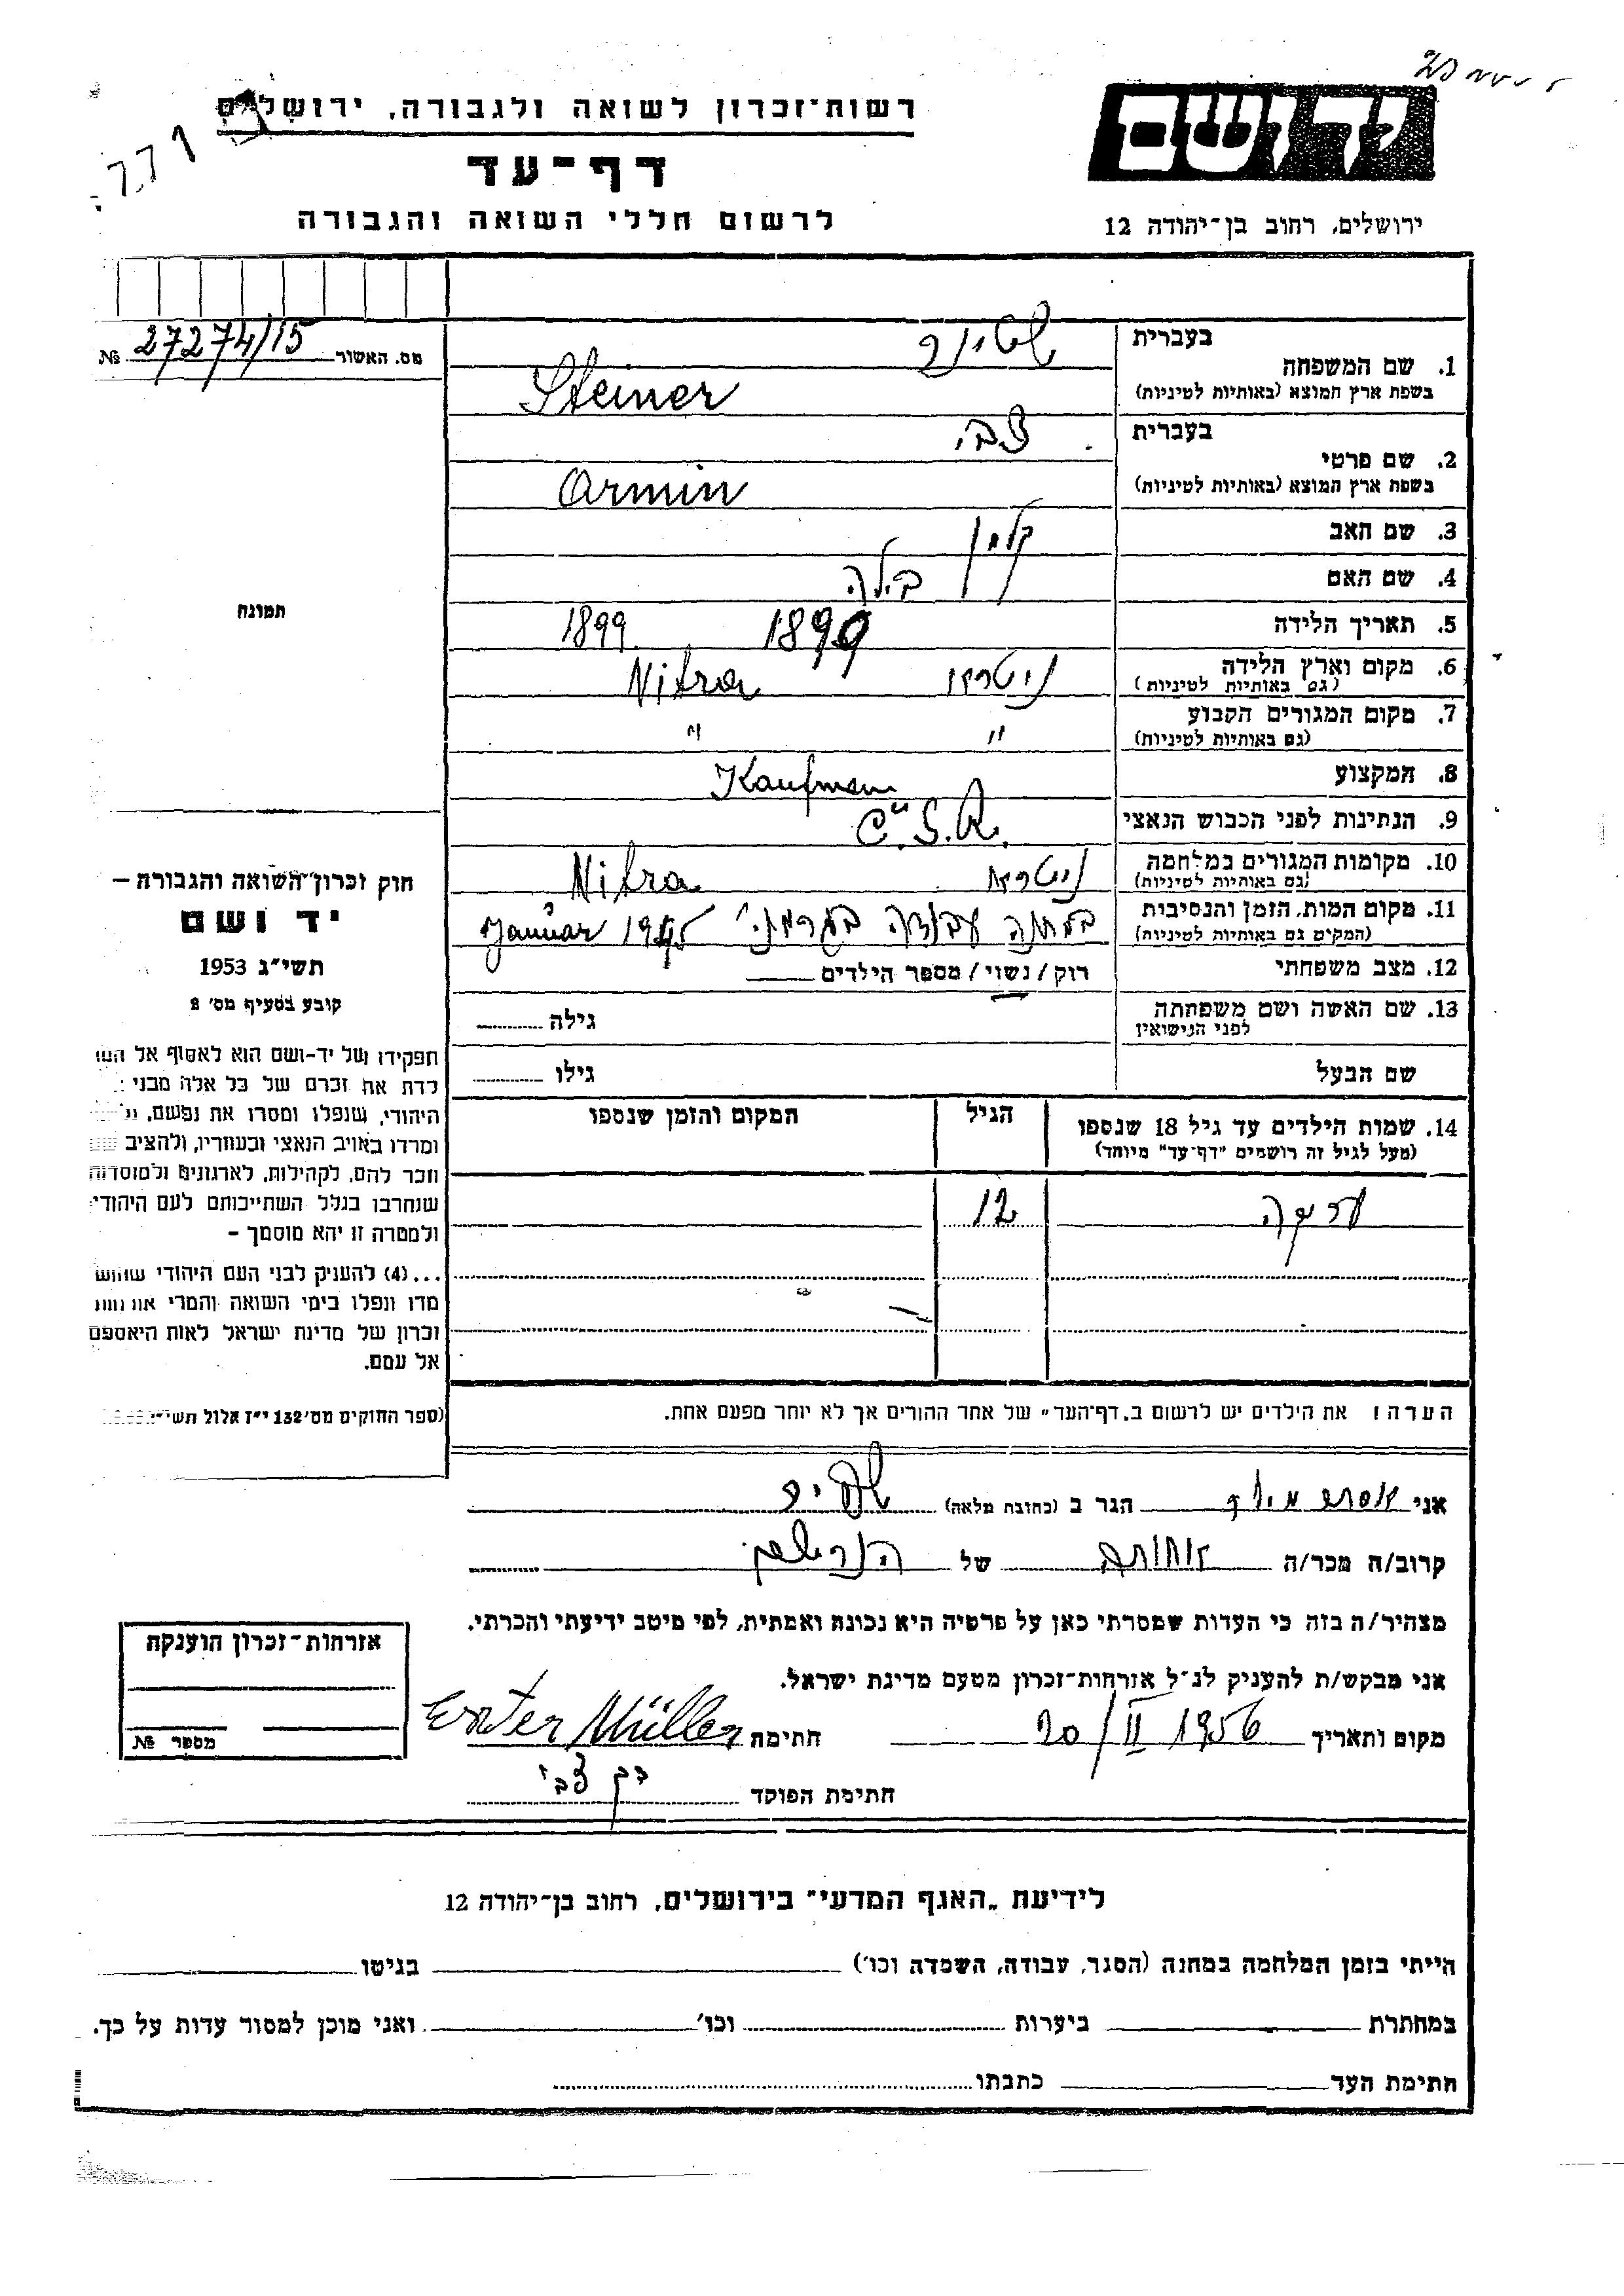 יד ושם
רשות־זכרון לשואה ולגבורה, ירושלים
דף־עד
לרשום חללי השואה והגבורה
ירושלים, רחוב בן־יהודה 12
מס. האשור № 27274/15
1. שם המשפחה
בעברית שטינר
בשפת ארץ המוצא (באותיות לטיניות) Steiner
2. שם פרטי
בעברית צבי
בשפת ארץ המוצא (באותיות לטיניות) Armin
3. שם האב קלמן
4. שם האם בילה
5. תאריך הלידה 1899 1899
6. מקום וארץ הלידה ניטרה Nitra
(גם באותיות לטיניות)
7. מקום המגורים הקבוע " "
(גם באותיות לטיניות)
8. המקצוע Kaufmann
9. הנתינות לפני הכבוש הנאצי Č.S.R.
10. מקומות המגורים במלחמה ניטרה Nitra
(גם באותיות לטיניות)
11. מקום המות, הזמן והנסיבות במחנה עבודה בגרמני' Januar 1945
(המקום גם באותיות לטיניות)
12. מצב משפחתי רוק / נשוי / מספר הילדים
13. שם האשה ושם משפחתה גילה
לפני הנישואין
שם הבעל גילו
14. שמות הילדים עד גיל 18 שנספו הגיל המקום והזמן שנספו
(מעל לגיל זה רושמים "דף־עד" מיוחד)
12
הערה: את הילדים יש לרשום ב„דף־העד" של אחד ההורים אך לא יותר מפעם אחת.
תמונה
חוק זכרון־השואה והגבורה —
יד ושם
תשי"ג 1953
קובע בסעיף מס' 2
תפקידו של יד־ושם הוא לאסוף אל
לדת את זכרם של כל אלה מבני
היהודי, שנפלו ומסרו את נפשם,
ומרדו באויב הנאצי ובעוזריו, ולהציב
וזכר להם, לקהילות, לארגונים ולמוסדות
שנחרבו בגלל השתייכותם לעם היהודי
ולמטרה זו יהא מוסמך –
...(4) להעניק לבני העם היהודי
מדו ונפלו בימי השואה והמרי
זכרון של מדינת ישראל לאות היאספם
אל עמם.
(ספר החוקים מס' 132 י"ז אלול
אני אסתר מילר הגר ב (כתובת מלאה)
קרוב/ה מכר/ה אחותה של הנרשם
מצהיר/ה בזה כי העדות שמסרתי כאן על פרטיה היא נכונה ואמתית, לפי מיטב ידיעתי והכרתי.
אני מבקש/ת להעניק לנ"ל אזרחות־זכרון מטעם מדינת ישראל.
מקום ותאריך 20/II 1956 חתימה Ester Müller
חתימת הפוקד בן צבי
אזרחות־זכרון הוענקה
מספר №
לידיעת „האגף המדעי" בירושלים, רחוב בן־יהודה 12
הייתי בזמן המלחמה במחנה (הסגר, עבודה, השמדה וכו') בגיטו
במחתרת ביערות וכו' ואני מוכן למסור עדות על כך.
חתימת העד כתבתו